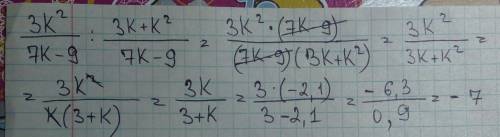 3K²/(7K-9) : (3K+K²)/(7K-9) = (3K²·(7K-9))/((7K-9)(3K+K²)) = 3K²/(3K+K²) =
= 3K²/(K(3+K)) = 3K/(3+K) = (3·(-2,1))/(3-2,1) = (-6,3)/(0,9) = -7